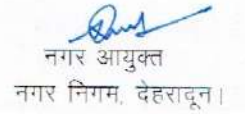 नगर आयुक्त
नगर निगम, देहरादून।